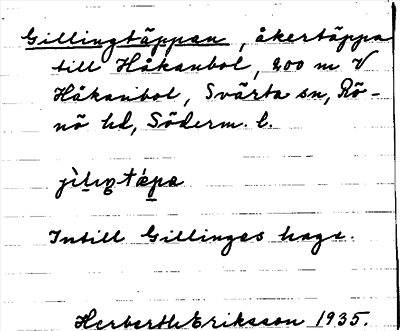 Gillingtäppan, åkertäppa
till Håkanbol, 200 m V
Håkanbol, Svärta sn, Rö-
nö hd, Söderm. l.
Intill Gillinges hage.
Herberth Eriksson 1935.